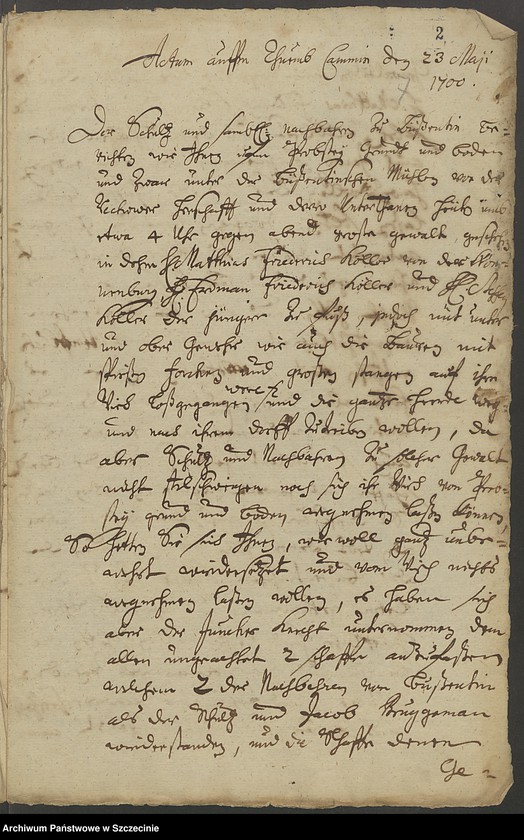 2
Actum auffm Thumb Cammin den 23 Maji
1700.
Der Schultz und sämbtl. nachbahren zu Bußentin be-
richten wie Ihnen Probstey Grundt und boden
und zwar unter der Bußentinschen Mühlen von der
Herschafft und dero Unterthanen heute umb
etwa 4 Uhr gegen abend große gewalt geschehen
in dehm H. Matthias Friederich Köller von der
H. Erdman Friederich Köller und H.
Köller der jünger zu fuß, jedoch mit unter
und ober Gewehr wie auch die Bauren mit
spießen forcken und großen stangen auf ihr
Vieh loßgegangen und die gantze heerde weg
und nach ihrem dorff zutreiben wollen, da
aber Schultz und Nachbahren zu solcher Gewalt
nicht stilschweigen noch sich ihr Vieh von Prob-
stey grund und boden wegnehmen laßen können
So hetten Sie sich Ihnen, wie woll gantz unbe-
wehrt wiedersetzet und vom Vieh nichts
wegnehmen laßen wollen, es haben sich
aber der Juncker Knecht unternommen dem
allen ungeachtet 2 schaffe anzufaßen
welchem 2 der Nachbahren von Bußentin
als der Schultz und Jacob Brüggeman
wiederstanden, und die Schaffe denen
Ge-
Archiwum Państwowe w Szczecinie